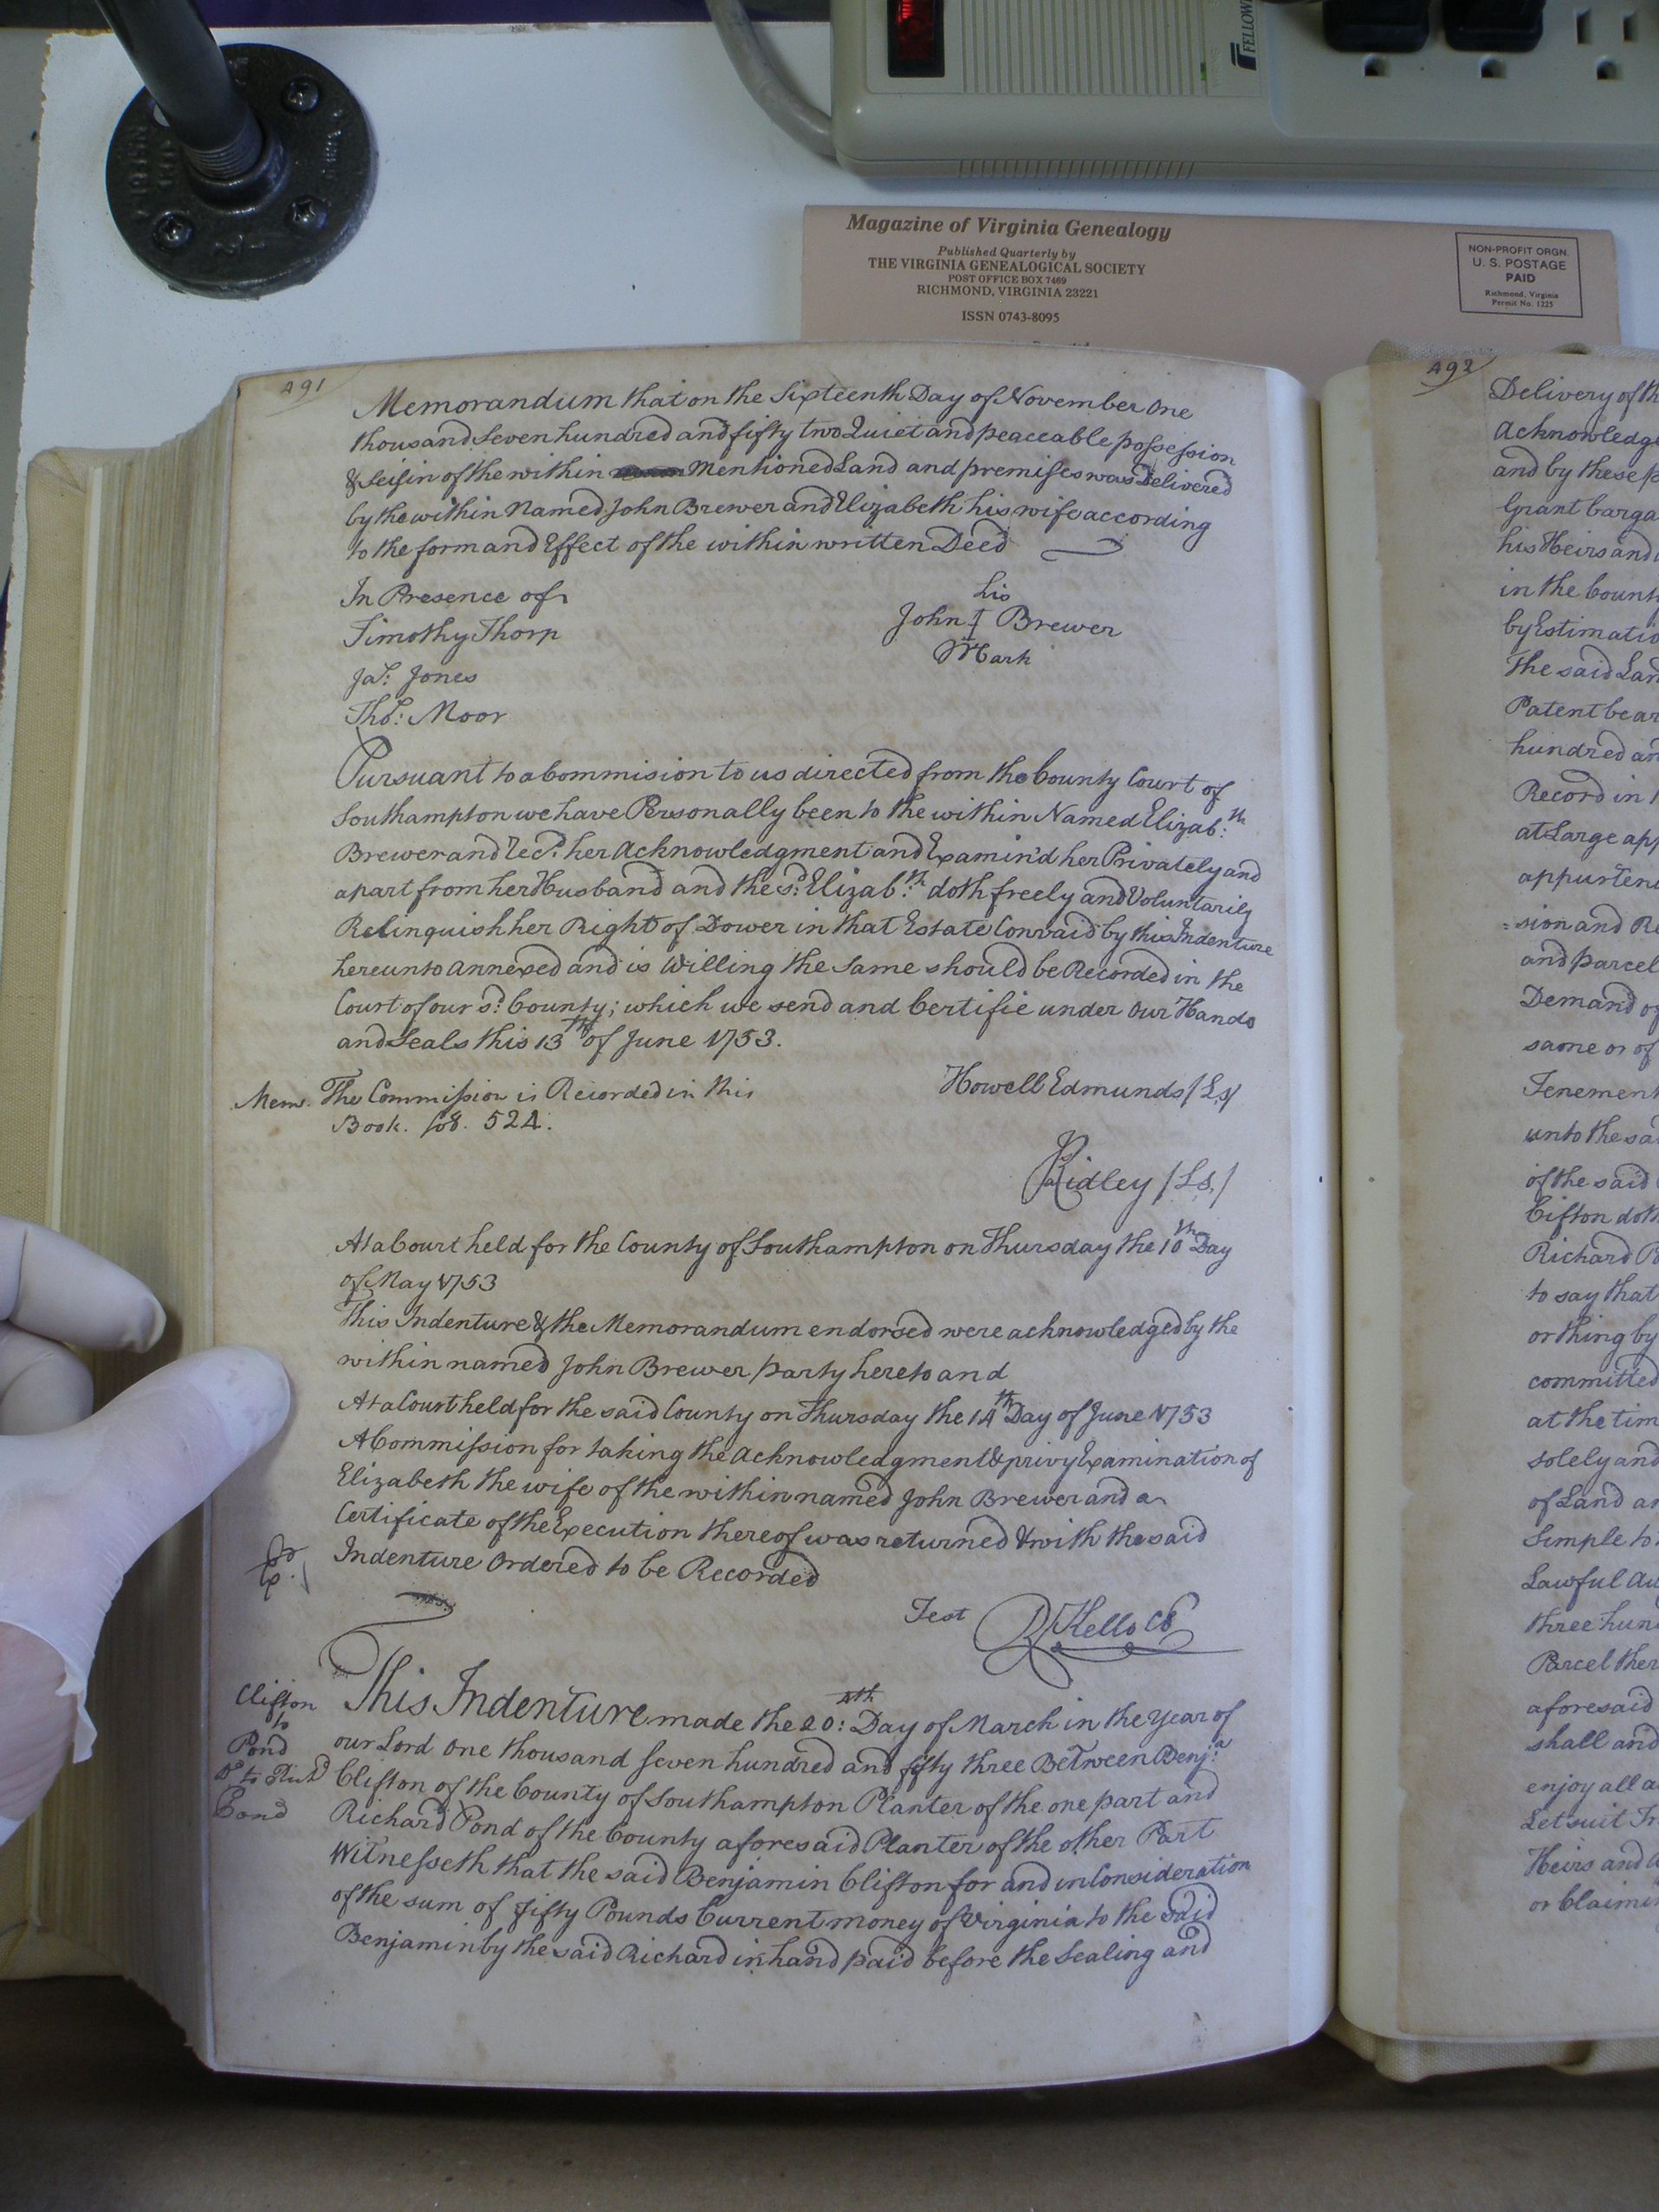 FELLOW
Magazine of Virginia Genealogy
Published Quarterly by
THE VIRGINIA GENEALOGICAL SOCIETY
POST OFFICE BOX 7469
RICHMOND, VIRGINIA 23221
ISSN 0743-8095
NON-PROFIT ORGN.
U. S. POSTAGE
PAID
Richmond, Virginia
Permit No. 1225
491
Memorandum that on the Sixteenth Day of November One
thousand Seven hundred and fifty two Quiet and peaceable possession
& Seisin of the within Mentioned Land and premises was Delivered
by the within Named John Brewer and Elizabeth his wife according
to the form and Effect of the within written Deed
In Presence of
Timothy Thorp
Jas: Jones
Thos: Moor
his
John I Brewer
Mark
Pursuant to a Commision to us directed from the County Court of
Southampton we have Personally been to the within Named Elizab:th
Brewer and Recd: her Acknowledgment and Examin'd her Privately and
apart from her Husband and the sd: Elizab:th doth freely and Voluntarily
Relinquish her Right of Dower in that Estate Convaid by this Indenture
hereunto Annexed and is Willing the Same should be Recorded in the
Court of our sd: County; which we send and Certifie under Our Hands
and Seals this 13th of June 1753.
Howell Edmunds /Ls/
Mem. The Commission is Recorded in this
Book. fol. 524.
Jas Ridley /Ls,/
At a Court held for the County of Southampton on Thursday the 10th Day
of May 1753
This Indenture & the Memorandum endorsed were acknowledged by the
within named John Brewer party hereto and
At a Court held for the said County on Thursday the 14th Day of June 1753
A Commission for taking the Acknowledgment & privy Examination of
Elizabeth the wife of the within named John Brewer and a
Certificate of the Execution thereof was returned & with the said
Indenture Ordered to be Recorded
Exd.
Test R Kello CC
Clifton
to
Pond
Dd to Richd
Pond
This Indenture made the 20:th Day of March in the Year of
our Lord One thousand Seven hundred and fifty three Between Benj:a
Clifton of the County of Southampton Planter of the one part and
Richard Pond of the County aforesaid Planter of the other Part
Witnesseth that the said Benjamin Clifton for and in Consideration
of the sum of fifty Pounds Current money of Virginia to the said
Benjamin by the said Richard in hand paid before the Sealing and
492
Delivery of th
Acknowledge
and by these p
Grant barga
his Heirs and
in the Count
by Estimatio
The said Lan
Patent bear
hundred an
Record in
at Large app
appurtena
=sion and Re
and parcel
Demand of
same or of
Tenement
unto the sa
of the said
Clifton doth
Richard Po
to say that
or thing by
committed
at the tim
solely and
of Land an
Simple to
Lawful Au
three hun
Parcel ther
aforesaid
shall and
enjoy all a
Let suit Tr
Heirs and
or Claimi